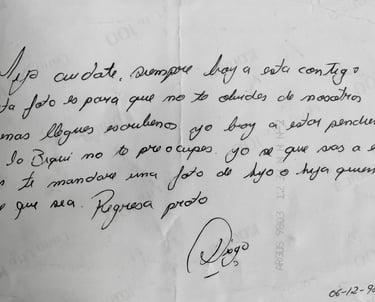 Mijo cuidate, siempre boy a esta contigo
ta foto es para que no te olvides de nosotros
enas llegues escribenos yo boy a estar pendien
lo Biqui no te preocupes. yo se que vas a e
te mandare una foto de hijo o hija quem
e que sea. Regresa proto
Diego
06-12-96